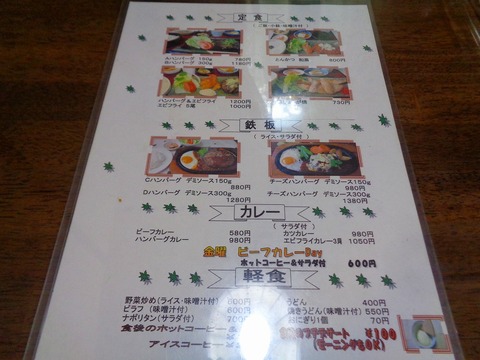 定食
（ご飯・小鉢・味噌汁付）
Aハンバーグ 150g 780円
Bハンバーグ 300g 1180円
とんかつ
ハンバーグ&エビフライ 1200円
エビフライ 5尾 1000円
730円
鉄板
（ライス・サラダ付）
Cハンバーグ デミソース150g
880円
Dハンバーグ デミソース300g
1280円
チーズハンバーグ デミソース150g
980円
チーズハンバーグ デミソース300g
1380円
カレー
（サラダ付）
ビーフカレー 580円
ハンバーグカレー 980円
カツカレー 980円
エビフライカレー3貝 1050円
金曜 ビーフカレーDay
ホットコーヒー&サラダ付 600円
軽食
野菜炒め（ライス・味噌汁付） 600円
ピラフ（味噌汁付） 600円
ナポリタン（サラダ付） 700円
うどん 400円
焼きうどん（味噌汁付） 550円
おにぎり1個 70円
食後のホットコーヒー
アイスコーヒー
デザート ¥100
（モーニングもOK）